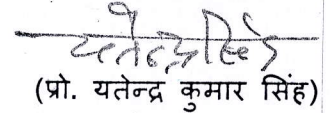 यतेन्द्र सिंह
(प्रो. यतेन्द्र कुमार सिंह)